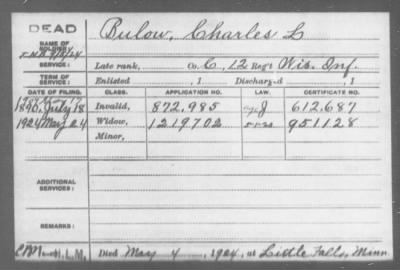 DEAD
Bulow, Charles L
NAME OF SOLDIER:
SERVICE: Late rank, Co. C, 12 Reg't Wis. Inf.
TERM OF SERVICE: Enlisted , 1 Discharged , 1
DATE OF FILING. CLASS. APPLICATION NO. LAW. CERTIFICATE NO.
1890, July 18 Invalid, 872.985 J 612.687
1924 May 24 Widow, 1219702 951128
Minor,
ADDITIONAL SERVICES:
REMARKS:
H.L.M. Died May 4, 1924, at Little Falls, Minn